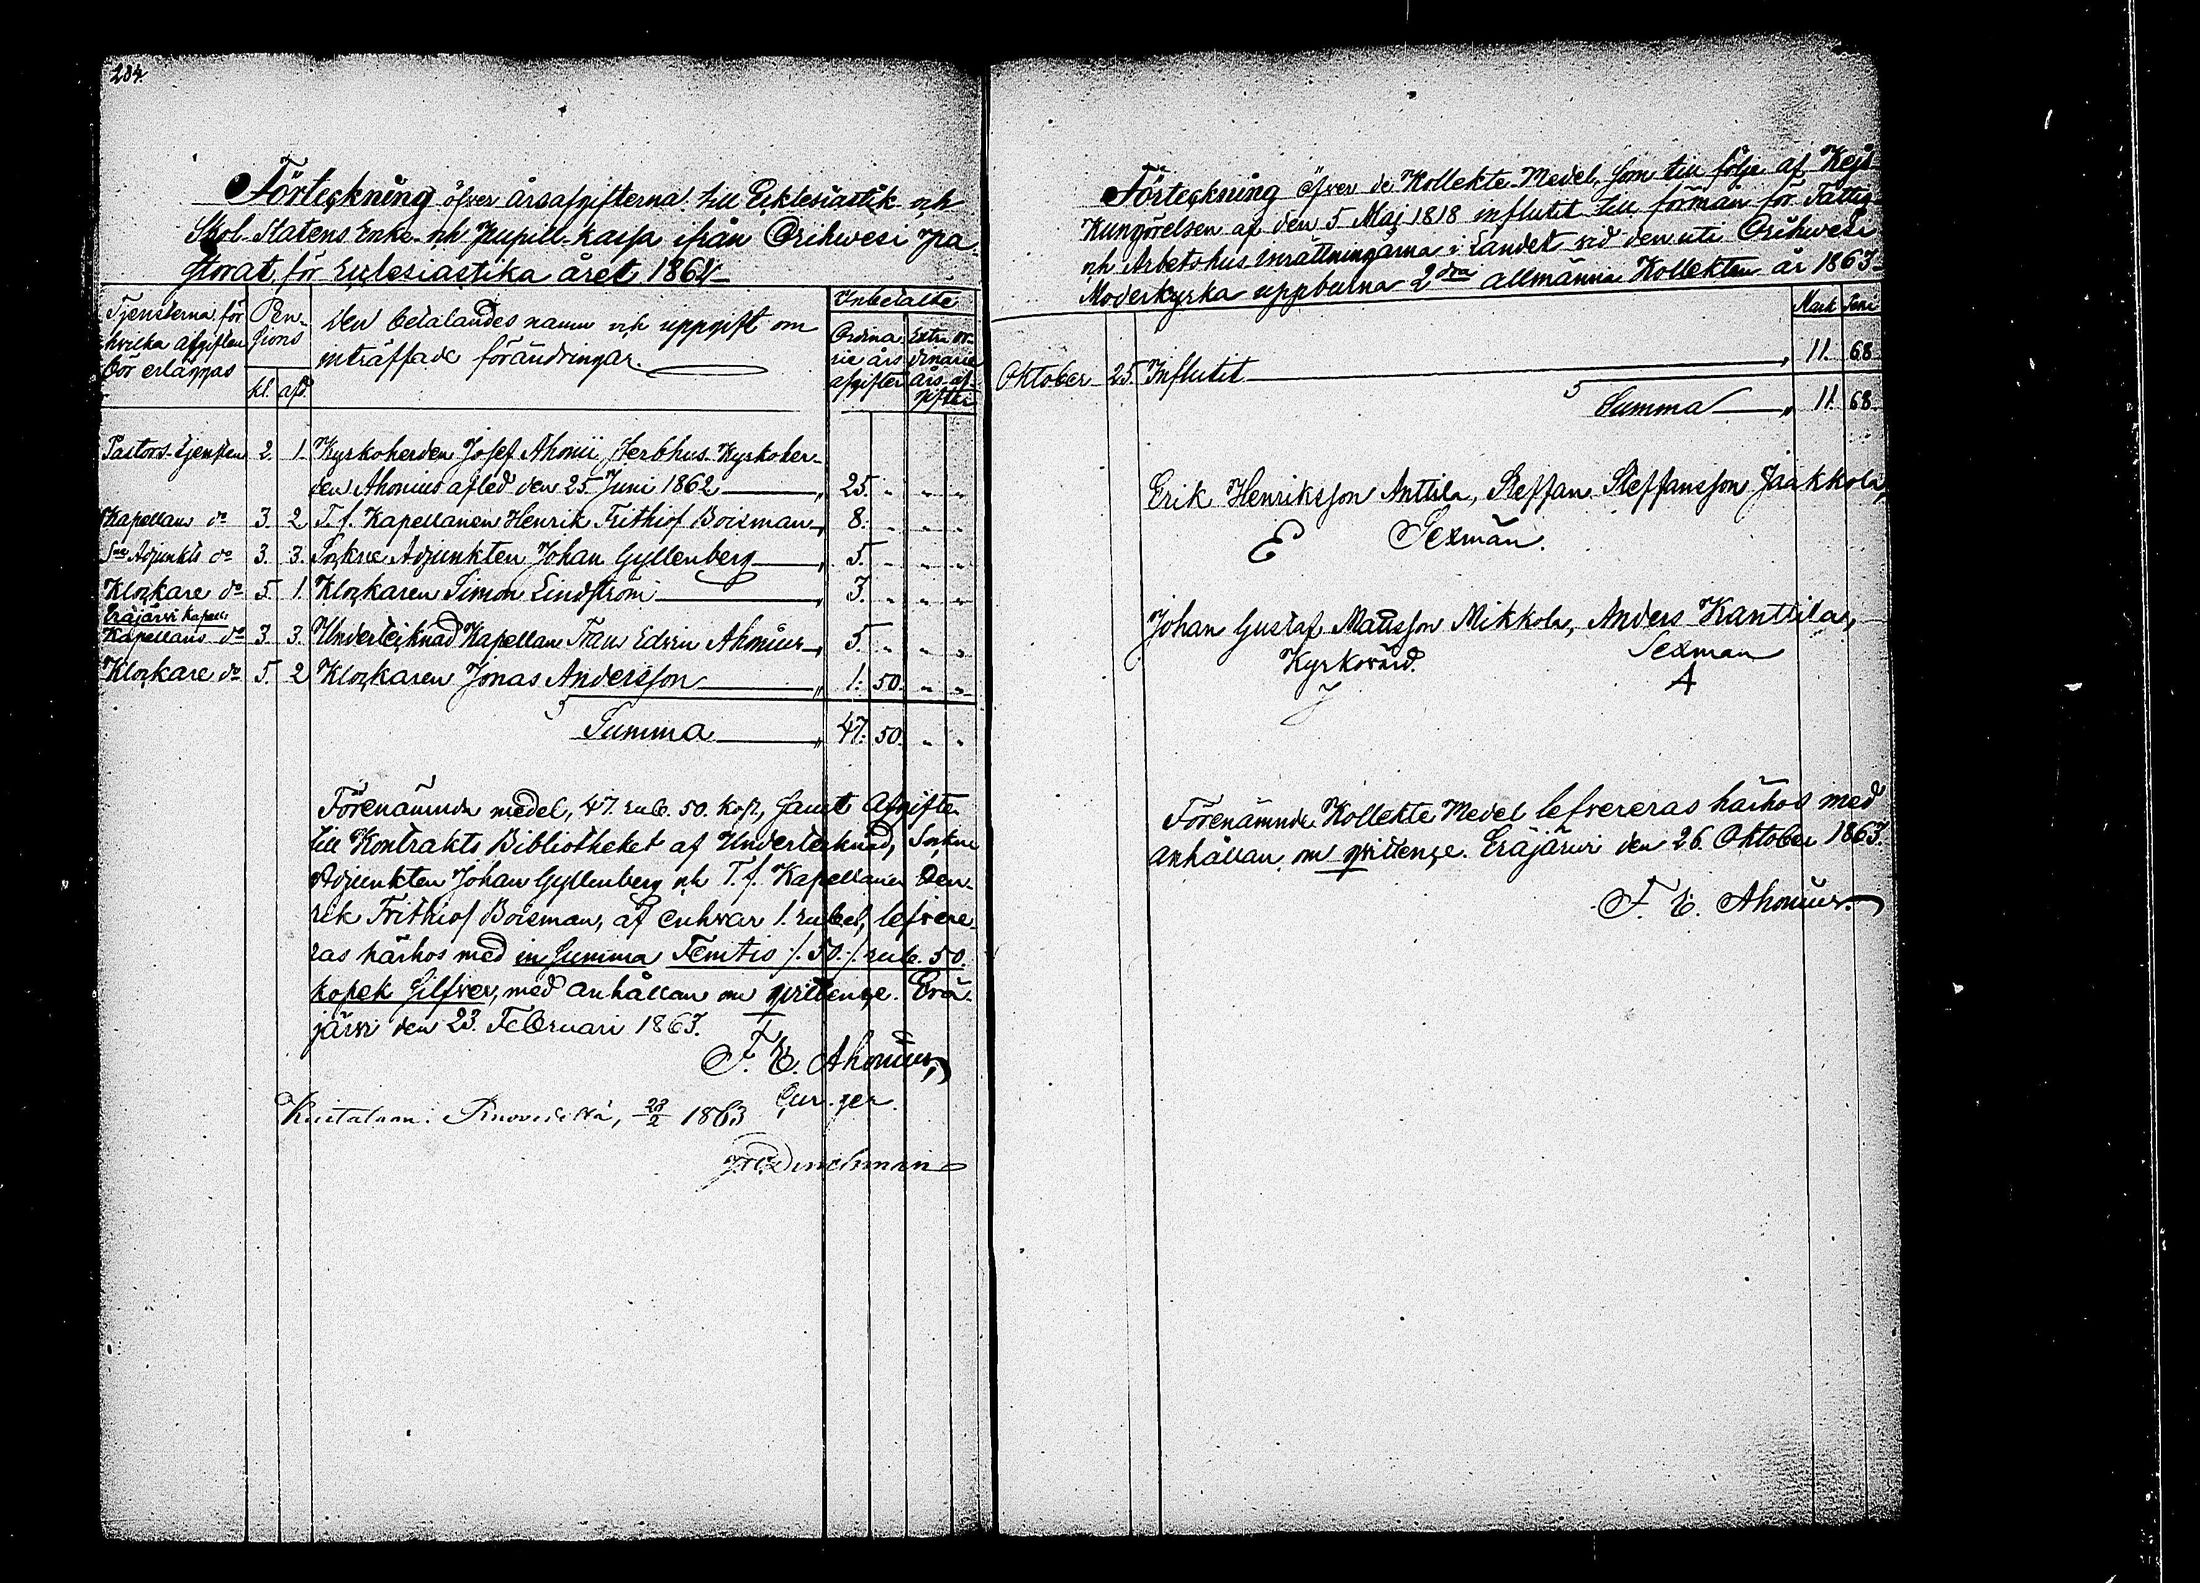 284.
Förteckning öfver årsafgifterna till Ecklesiastik och
Skol-Statens Enke- och Pupill-kassa ifrån Orihwesi pa-
storat, för Ecclesiastika året 1862
Tjensterna för hvilka afgiften bör erläggas
Pensions
kl. afd.
Den betalandes namn och uppgift om
inträffade förändringar.
Inbetalte
Ordinarie års afgifter
Extra ordinarie års afgifter
Pastors-tjensten 2. 1. Kyrkoherden Josef Ahonii Sterbhus. Kyrkoher-
den Ahonius afled den 25 Juni 1862 " 25. " " "
Kapellans do 3. 2 T. f. Kapellanen Henrik Frithiof Boisman " 8. " " "
Sne Adjunkts do 3. 3. Sockne Adjunkten Johan Gyllenberg " 5. " " "
Klockare do 5. 1 Klockaren Simon Lindström " 3. " " "
Eräjärvi Kapells
Kapellans do 3. 3. Undertecknad Kapellan Frans Edvin Ahonius " 5. " " "
Klockare do 5. 2 Klockaren Jonas Andersson " 1. 50. " "
Summa " 47. 50. " "
Förenämnda medel, 47. rub. 50. kop., samt Afgiften
till Kontrakts Bibliotheket af Undertecknad, Sockne
Adjunkten Johan Gyllenberg och T. f. Kapellanen Hen-
rik Frithiof Boisman, af enhvar 1. rubel, lefvere-
ras härhos med in Summa Femtio /. 50. /. rub. 50.
kopek Silfver, med anhållan om qvittence. Erä-
järvi den 23. Februari 1863.
F. E. Ahonius,
Cur. ger.
Kuitataan: 28/2 1863
Förteckning öfver de Kollekte Medel, som till följe af Kejs.
Kungörelsen af den 5 Maj 1818 influtit till förmån för Fattig-
och Arbetshus-Inrättningarna i Landet vid den uti Orihwesi
Moderkyrka uppburna 2dra allmänna Kollekten år 1863
Mark Peni
Oktober 25. Influtit " 11. 68
Summa " 11. 68.
Erik Henriksson Anttila, Steffan Steffansson Jaakkola,
E Sexmän.
Johan Gustaf Mattsson Mikkola, Anders Kanttila,
Kyrkovärd. Sexman
J A
Förenämnde Kollekte Medel lefvereras härhos med
anhållan om qvittence. Eräjärvi den 26. Oktober 1863.
F. E. Ahonius.